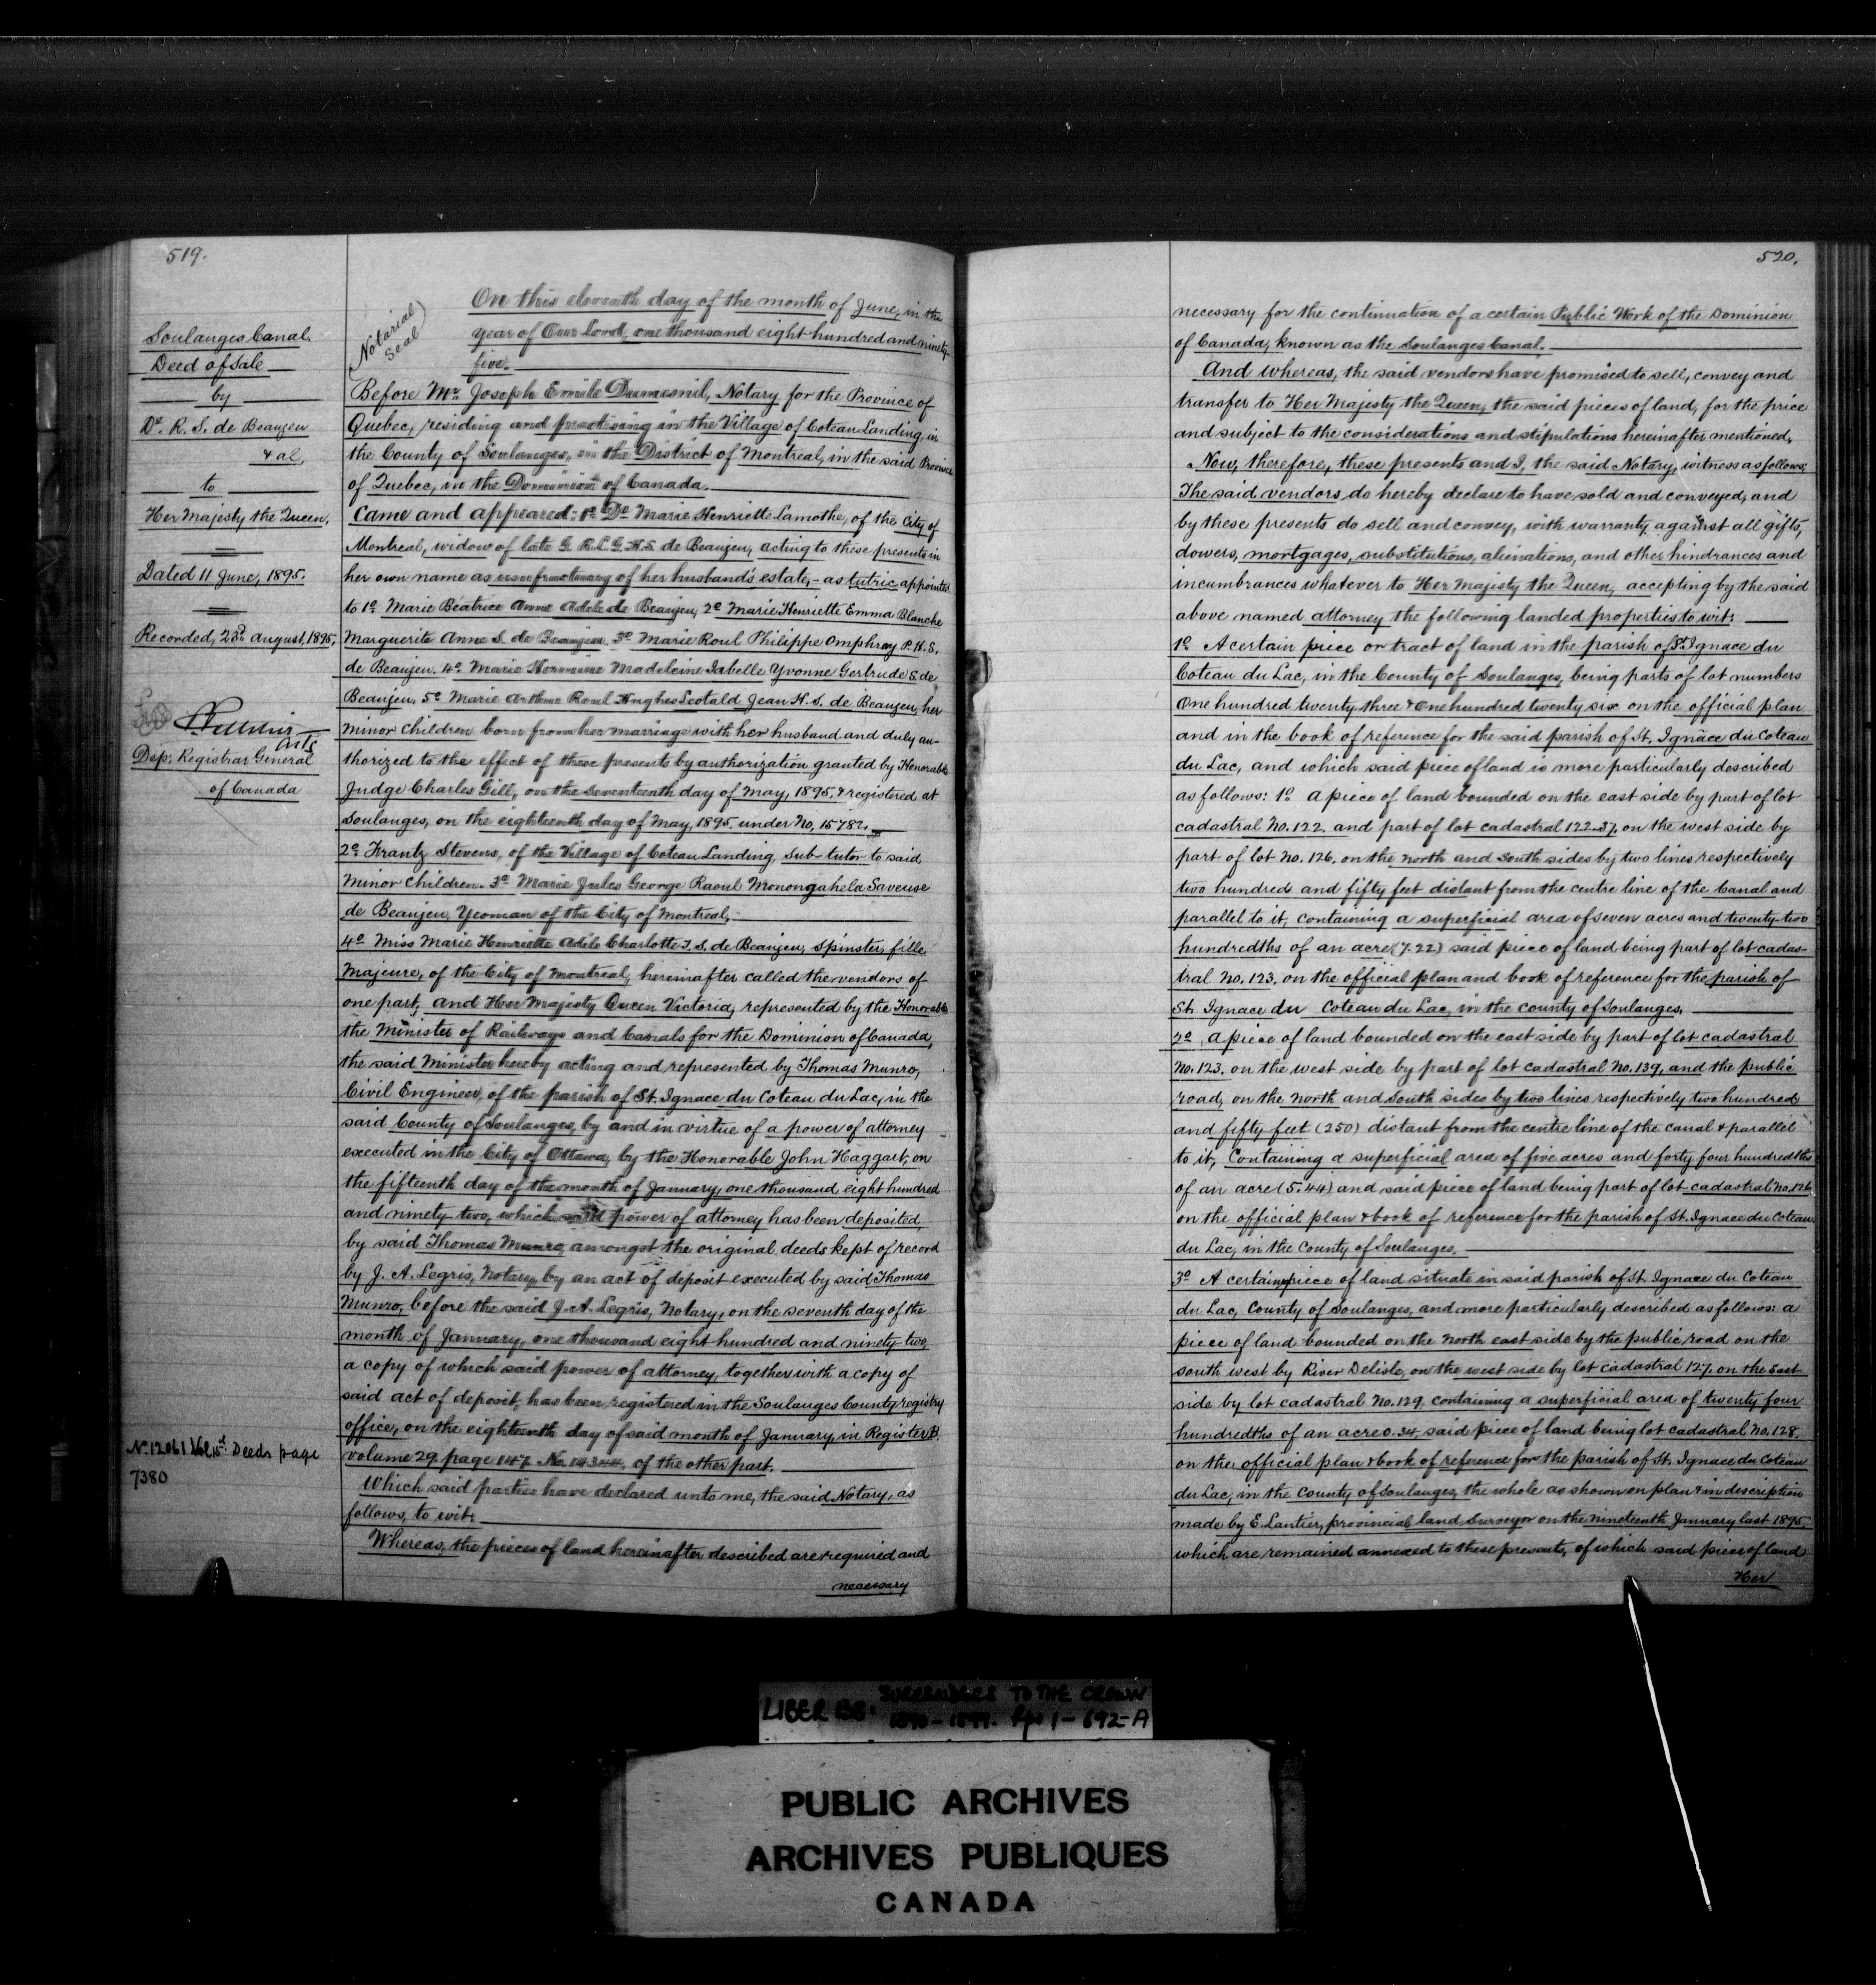 519.
Soulanges Canal.
Deed of Sale
by
De. R. S. de Beaujeu
& al,
to
Her Majesty the Queen.
Dated 11 June, 1895.
Recorded, 23d. August, 1895.
Dep: Registrar General
of Canada
No 12061 Vol 15th Deeds page
7380
(Notarial
Seal)
On this eleventh day of the month of June, in the
year of Our Lord, one thousand eight hundred and ninety-
five.
Before Mr. Joseph Emile Dumesnil, Notary for the Province of
Quebec, residing and practising in the Village of Coteau Landing in
the County of Soulanges, in the District of Montreal, in the said Province
of Quebec, in the Dominion of Canada.
Came and appeared: 1o De Marie Henriette Lamothe, of the City of
Montreal, widow of late G. R. L. G. H. S. de Beaujeu, acting to these presents in
her own name as usufructuary of her husband's estate, - as tutrix appointed
to 1o Marie Béatrice Anne Adele de Beaujeu, 2o Marie Henriette Emma Blanche
Marguerite Anne S. de Beaujeu. 3o Marie Roul Philippe Omphray P. H. S.
de Beaujeu. 4o Marie Hermine Madeleine Isabelle Yvonne Gertrude S. de
Beaujeu. 5o Marie Arthur Roul Hughes Leotald Jean H. S. de Beaujeu, her
minor children born from her marriage with her husband and duly au-
thorized to the effect of these presents by authorization granted by Honorable
Judge Charles Gill, on the seventeenth day of May, 1895, & registered at
Soulanges, on the eighteenth day of May, 1895. under No. 15782.
2o Frantz Stevens, of the Village of Coteau Landing, Sub-tutor to said
minor children. 3o Marie Jules George Raoul Monongahela Saveuse
de Beaujeu, Yeoman of the City of Montreal,
4o Miss Marie Henriette Adèle Charlotte J. S. de Beaujeu, Spinster, fille
Majeure, of the City of Montreal, hereinafter called the vendors of
one part, and Her Majesty Queen Victoria, represented by the Honorable
the Minister of Railways and Canals for the Dominion of Canada,
the said Minister hereby acting and represented by Thomas Munro,
Civil Engineer, of the parish of St. Ignace du Coteau du Lac, in the
said County of Soulanges, by and in virtue of a power of attorney
executed in the City of Ottawa, by the Honorable John Haggart, on
the fifteenth day of the month of January, one thousand eight hundred
and ninety two, which said power of attorney has been deposited,
by said Thomas Munro amongst the original deeds kept of record
by J. A. Legris, Notary, by an act of deposit executed by said Thomas
Munro, before the said J. A. Legris, Notary, on the seventh day of the
month of January, one thousand eight hundred and ninety-two,
a copy of which said power of attorney, together with a copy of
said act of deposit, has been registered in the Soulanges County registry
office, on the eighteenth day of said month of January, in Register B.
volume 29. page 147. No. 14344. of the other part.
Which said parties have declared unto me, the said Notary, as
follows, to wit:
Whereas, the pieces of land hereinafter described are required and
necessary
520.
necessary for the continuation of a certain Public Work of the Dominion
of Canada, known as the Soulanges Canal.
And whereas, the said vendors have promised to sell, convey and
transfer to Her Majesty the Queen, the said pieces of land, for the price
and subject to the considerations and stipulations hereinafter mentioned.
Now, therefore, these presents and I, the said Notary, witness as follows:
The said vendors do hereby declare to have sold and conveyed, and
by these presents do sell and convey, with warranty against all gifts,
dowers, mortgages, substitutions, alienations, and other hindrances and
incumbrances whatever to Her Majesty the Queen, accepting by the said
above named attorney the following landed properties to wit:
1o A certain piece or tract of land in the parish of St. Ignace du
Coteau du Lac, in the County of Soulanges, being parts of lot numbers
One hundred twenty three & One hundred twenty six on the official plan
and in the book of reference for the said parish of St. Ignace du Coteau
du Lac, and which said piece of land is more particularly described
as follows: 1o A piece of land bounded on the east side by part of lot
cadastral No. 122. and part of lot cadastral 122-37. on the west side by
part of lot No. 126. on the north and south sides by two lines respectively
two hundred and fifty feet distant from the centre line of the Canal and
parallel to it, containing a superficial area of seven acres and twenty-two
hundredths of an acre (7.22) said piece of land being part of lot cadas-
tral No. 123. on the official plan and book of reference for the parish of
St. Ignace du Coteau du Lac, in the county of Soulanges.
2o A piece of land bounded on the east side by part of lot cadastral
No. 123. on the west side by part of lot cadastral No. 139. and the public
road, on the north and south sides by two lines respectively two hundred
and fifty feet (250) distant from the centre line of the canal & parallel
to it, Containing a superficial area of five acres and forty four hundredths
of an acre (5.44) and said piece of land being part of lot cadastral No. 126
on the official plan & book of reference for the parish of St. Ignace du Coteau
du Lac, in the County of Soulanges.
3o A certain piece of land situate in said parish of St. Ignace du Coteau
du Lac, County of Soulanges, and more particularly described as follows: a
piece of land bounded on the north east side by the public road on the
south west by River Delisle, on the west side by lot cadastral 127, on the East
side by lot cadastral No. 129. containing a superficial area of twenty four
hundredths of an acre 0.24, said piece of land being lot cadastral No. 128.
on the official plan & book of reference for the parish of St. Ignace du Coteau
du Lac, in the County of Soulanges, the whole as shown on plan & in discription
made by E. Lantier, provincial land Surveyor on the nineteenth January last 1895.
which are remained annexed to these presents, of which said piece of land
Her
LIBER BB: SURRENDERS TO THE CROWN
1890-1899. Pgs 1-692-A
PUBLIC ARCHIVES
ARCHIVES PUBLIQUES
CANADA